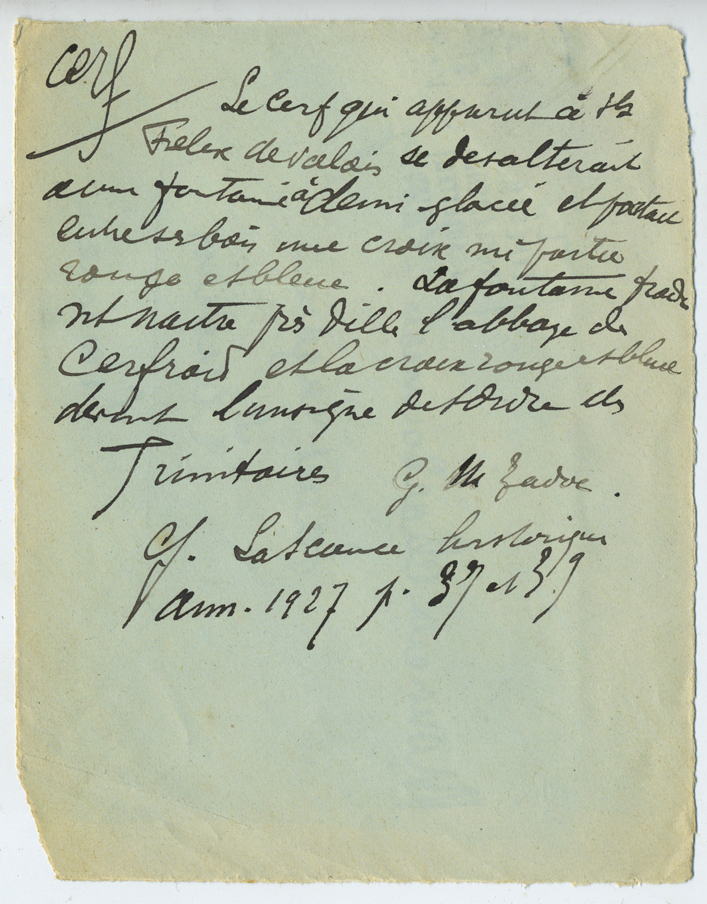 Cerf
Le Cerf qui apparut à St
Félix de Valois se desalterait
a une fontaine à demi glacée et portait
entre ses bois une croix mi partie
rouge et bleue. La fontaine
naitre près d'elle l'abbaye de
Cerfroid et la croix rouge et bleue
devint l'insigne de l'Ordre des
Trinitaires G. M
Cf. La Science historique
Ann. 1927 p. 37 et 39